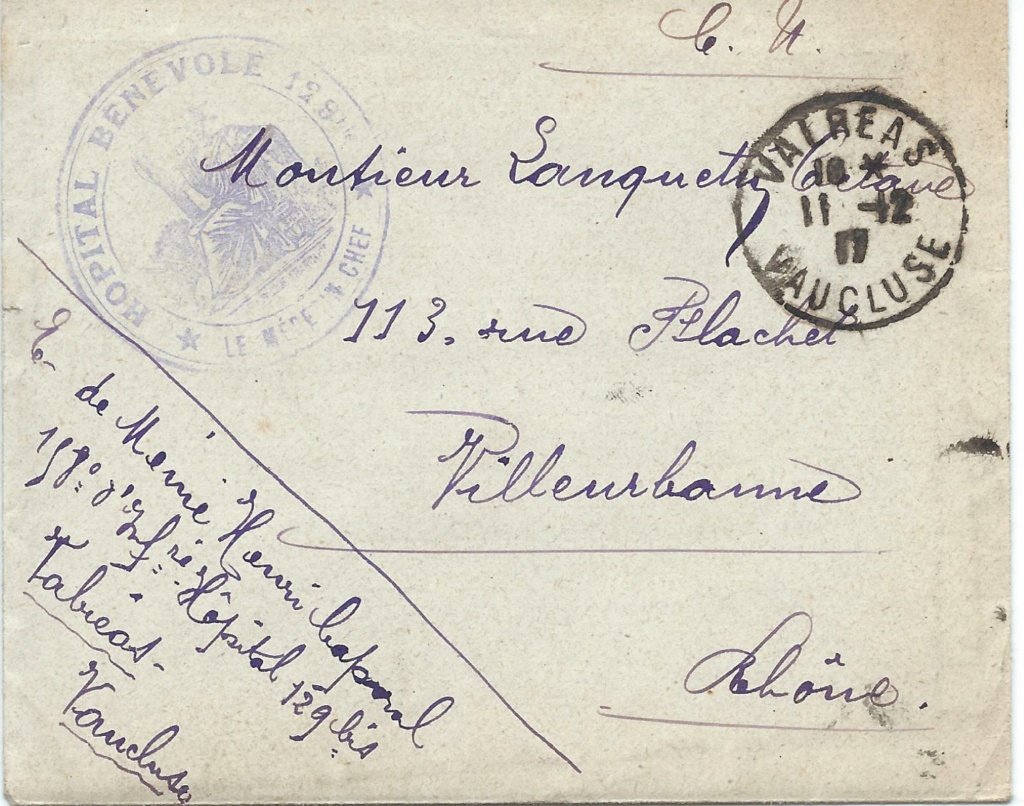 C. N.
HOPITAL BENEVOLE 129
LE MEDE CHEF
VALREAS
10 *
11 -12
17
VAUCLUSE
Monsieur Lanquetin Octave
113. rue Flachet
Villeurbanne
Rhône.
E.
de Memé Henri Caporal
158º d'Infrie Hôpital 129 bis
Valréas -
Vaucluse